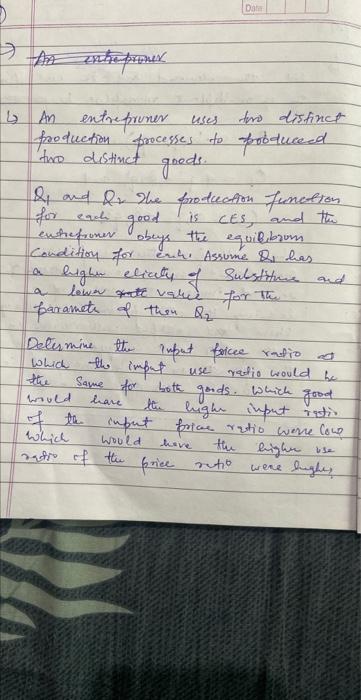 Date
An entrepruner
An entrepruner uses two distinct
production processes to produceed
two distinct goods.
Q1 and Q2 The production function
for each good is CES, and the
entrepruner obeys the equilibrium
Condition for each. Assume Q1 has
a higher of Substitute and
a lower value for the
paramete of then Q2
Determine the input price radio at
which the input use radio would be
the Same for both goods. Which good
would have the high input ratio
if the input price ratio were low?
Which would have the higher use
radio if the price ratio were higher